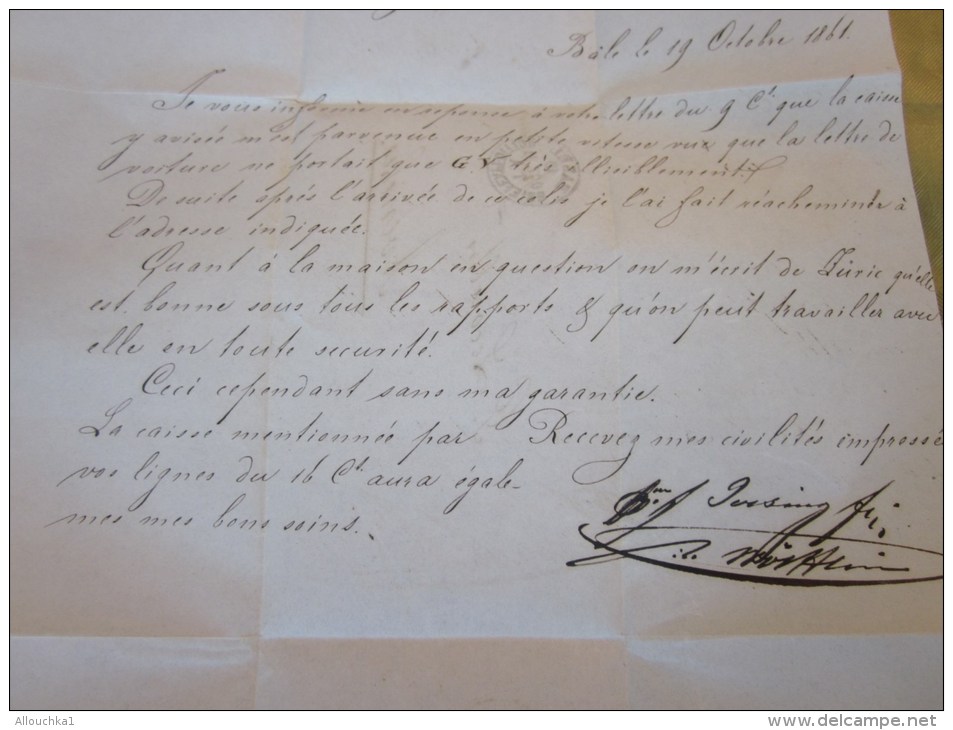 Bâle le 19 Octobre 1861.
Je vous informe en reponse à votre lettre du 9 Ct que la caisse
y avisée m'est parvenue en petite vitesse vue que la lettre de
voiture ne portait que G. V. très illisiblement
De suite aprés l'arrivée de ce colis je l'ai fait réacheminer à
l'adresse indiquée.
Quant à la maison en question on m'écrit de Züric qu'elle
est bonne sous tous les rapports & qu'on peut travailler avec
elle en toute securité.
Ceci cependant sans ma garantie.
La caisse mentionnée par
vos lignes du 16 Ct aura égale-
mes mes bons soins.
Recevez mes civilités impressé
Allouchka1
www.delcampe.net